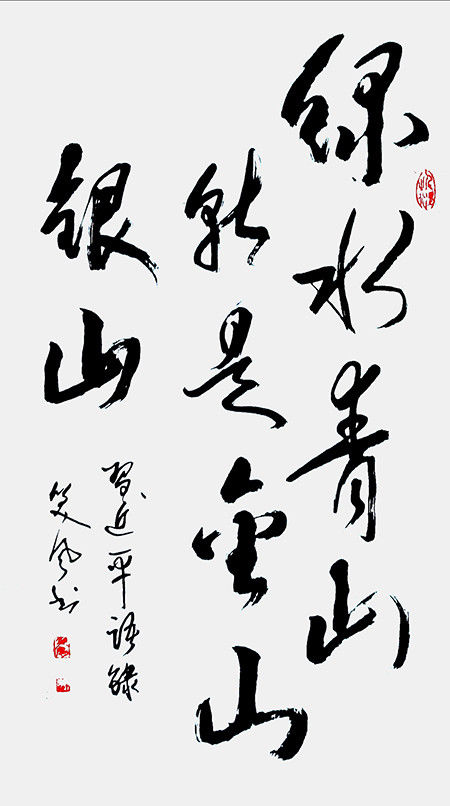 绿水青山
就是金山
银山
习近平语录
笑风书